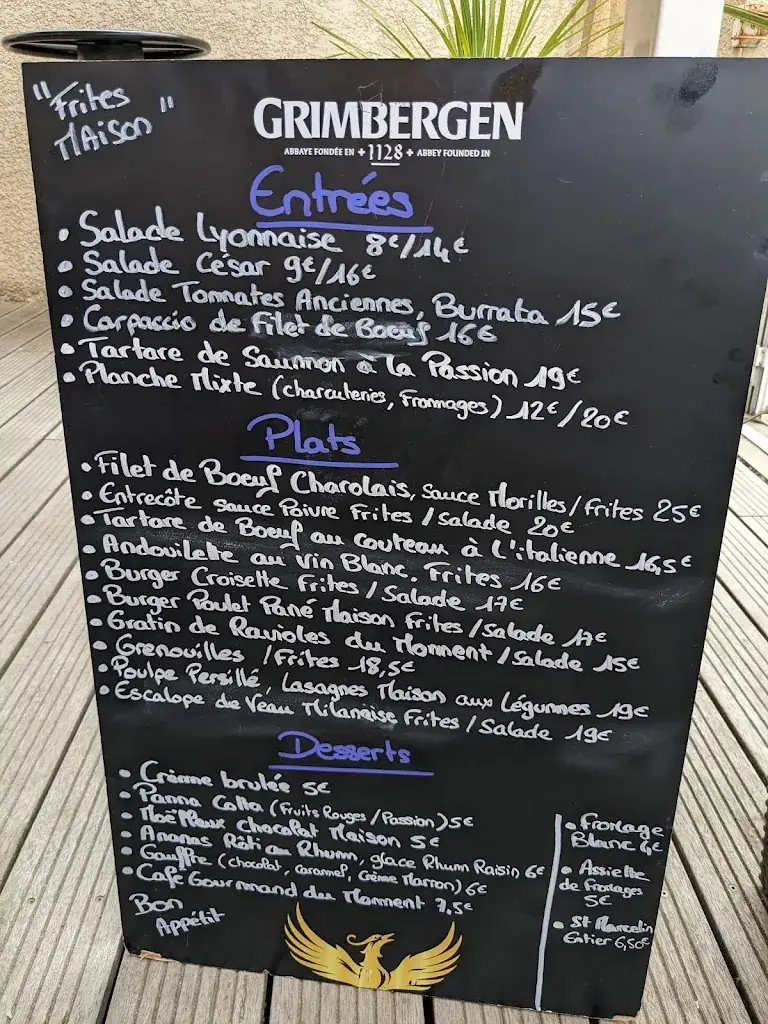 "Frites
Maison"
GRIMBERGEN
ABBAYE FONDÉE EN + 1128 + ABBEY FOUNDED IN
Entrées
• Salade Lyonnaise 8€/14€
• Salade César 9€/16€
• Salade Tommates Anciennes, Burrata 15€
• Carpaccio de Filet de Boeuf 16€
• Tartare de Saumon à la Passion 19€
• Planche Mixte (charcuteries, Fromages) 12€/20€
Plats
• Filet de Boeuf Charolais, sauce Morilles/Frites 25€
• Entrecôte sauce Poivre Frites /salade 20€
• Tartare de Boeuf au couteau à l'italienne 16,5€
• Andouillette au vin Blanc. Frites 16€
• Burger Croisette Frites / Salade 17€
• Burger Poulet Pané Maison Frites /Salade 17€
• Gratin de Ravioles du Moment / Salade 15€
• Grenouilles /Frites 18,5€
• Poulpe Persillé, Lasagnes Maison aux Légumes 19€
• Escalope de Veau Milanaise Frites / Salade 19€
Desserts
• Crème brulée 5€
• Panna Cotta (Fruits Rouges /Passion) 5€
• Moëlleux chocolat Maison 5€
• Ananas Rôti au Rhum, glace Rhum Raisin 6€
• Gauffre (chocolat, caramel, Crème Marron) 6€
• Café Gourmand du Moment 7,5€
Bon
Appétit
• Fromage
Blanc 4€
• Assiette
de Fromages
5€
• St Marcelin
Entier 6,50€